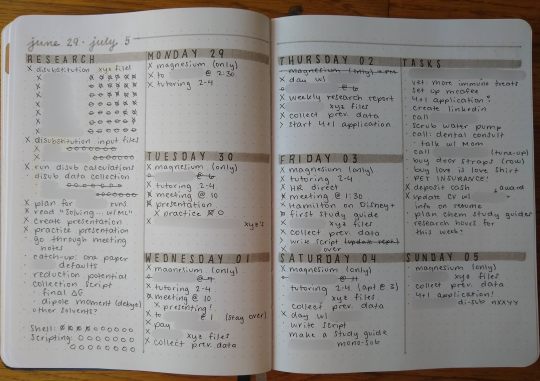 june 29 - july 5
RESEARCH
x disubstitution xyz files
x
x
x
x
x
x disubstitution input files
x
x
x run disub calculations
disub data collection
x plan for runs
x read "Solving... w/ MC"
x create presentation
x practice presentation
go through meeting
notes
catch-up: ana paper
defaults
reduction potential
collection script
- final ΔG
- dipole moment (debye)
other solvents?
Shell:
Scripting:
MONDAY 29
x magnesium (only)
x to @ 2:30
x tutoring 2-4
TUESDAY 30
x magnesium (only)
x tutoring 2-4
x meeting @ 10
x presentation
x practice
x xyz's
WEDNESDAY 01
x magnesium (only)
x tutoring 2-4
x meeting @ 10
x presenting!
x to @ 1 (stay over)
x pay
x xyz files
x collect prev. data
THURSDAY 02
x magnesium (only)
x day w/
x weekly research report
x xyz files
x collect prev. data
x start 4+1 application
FRIDAY 03
x magnesium (only)
x tutoring 2-4
x HR direct
x meeting @ 1:30
x hamilton on Disney+
x first study guide
x xyz files
x collect prev. data
x write script
over
SATURDAY 04
x magnesium (only)
tutoring 2-4 (apt @ 3)
xyz files
collect prev. data
x day w/
write script
make a study guide
mono-sub
TASKS
vet: more immune treats
set up mcafee
4+1 application
create linkedin
call
scrub water pump
call: dental consult
talk w/ mom
call (tune-up)
buy door straps (row)
buy love is love shirt
PET INSURANCE!
x deposit cash
award
x update CV w/
info on resume
plan chem study guides
research hours for
this week?
SUNDAY 05
magnesium (only)
xyz files
collect prev. data
4+1 application!